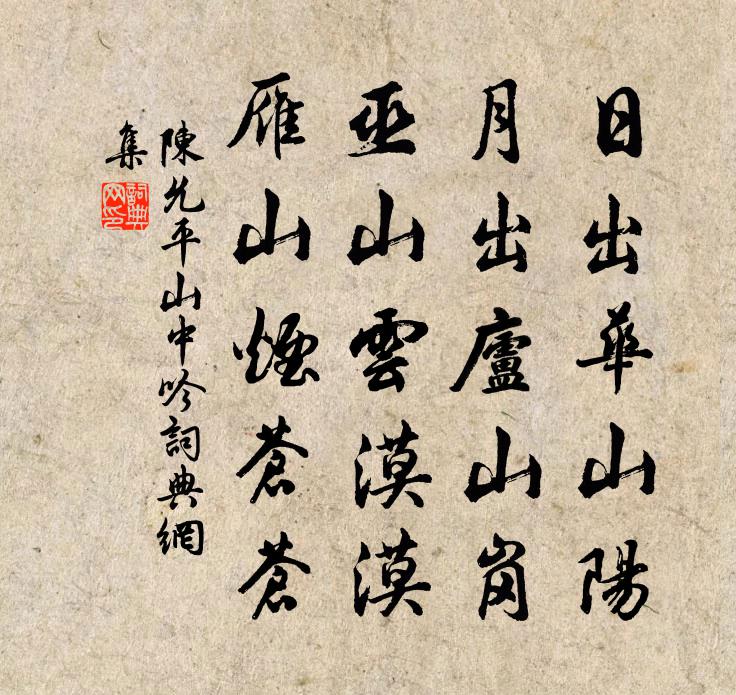 日出華山陽
月出廬山崗
巫山雲漠漠
雁山煙蒼蒼
陳允平山中吟詞典網
集
詞典网印